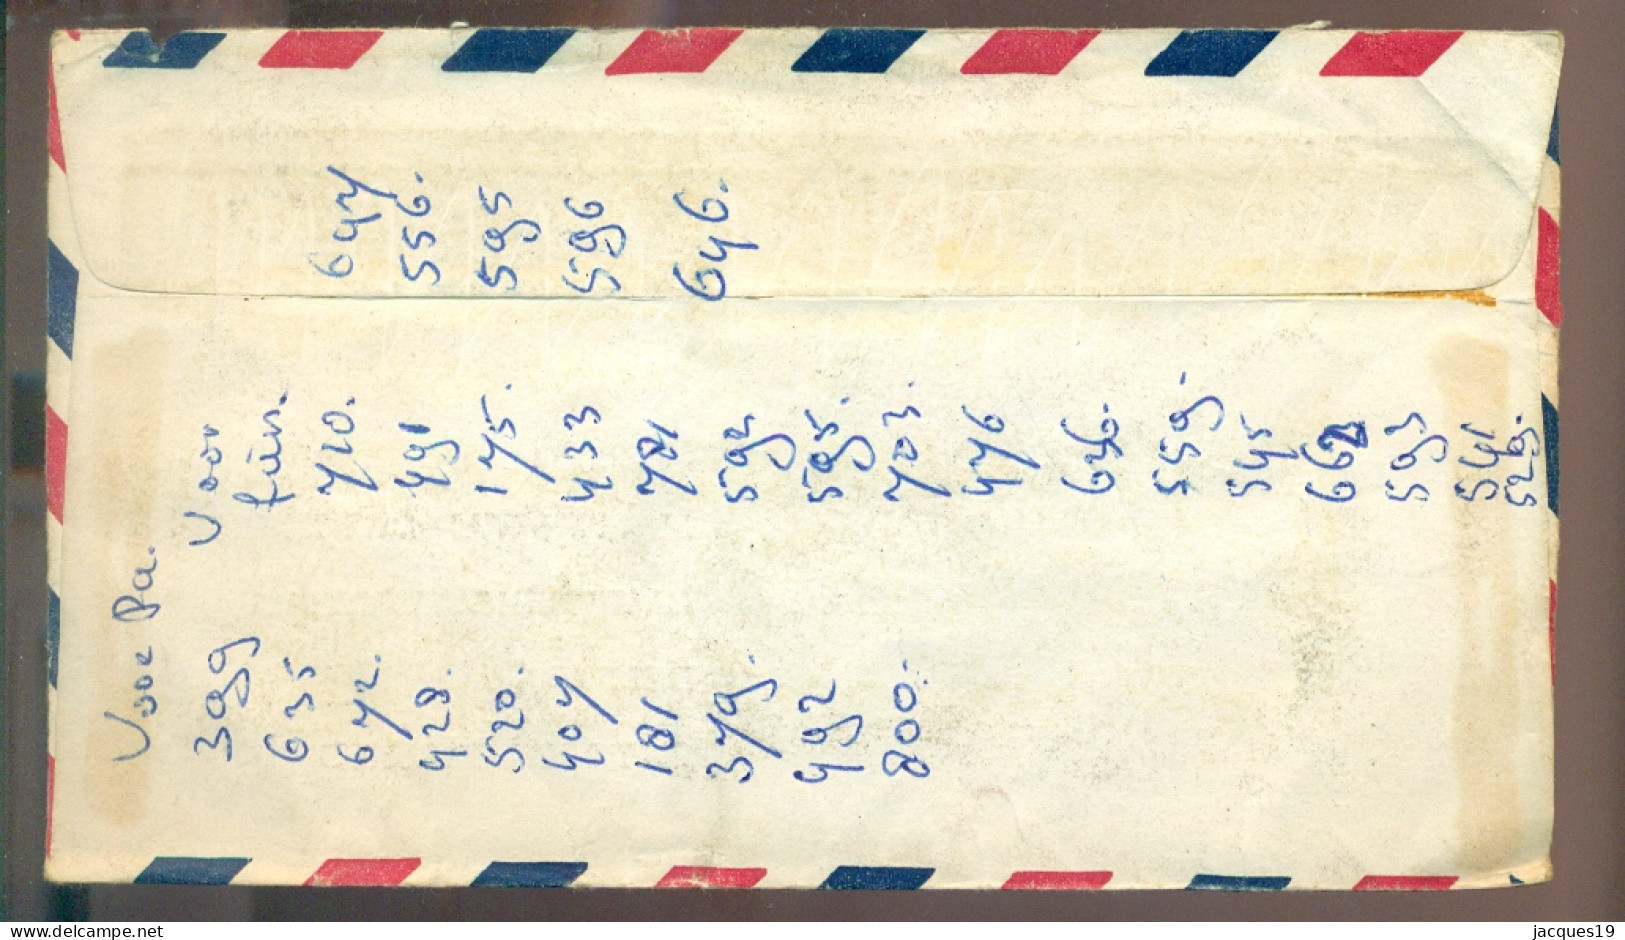 Voor Pa.
399
635
672.
428.
520.
407
181
379.
492
800.
Voor
710.
491
175.
433
781
592
595.
703.
476
646.
559.
545
662
593
541
529.
647
556.
595
596
646.
delcampe.net
jacques19